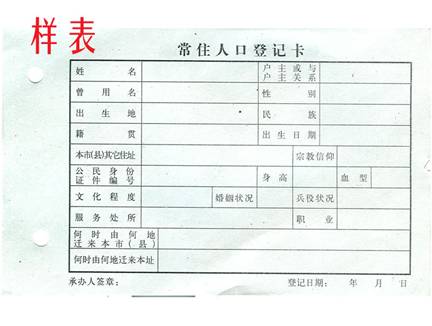 样表
常住人口登记卡
姓名 户主或与户主关系
曾用名 性别
出生地 民族
籍贯 出生日期
本市(县)其它住址 宗教信仰
公民身份证件编号 身高 血型
文化程度 婚姻状况 兵役状况
服务处所 职业
何时由何地迁来本市(县)
何时由何地迁来本址
承办人签章: 登记日期: 年 月 日